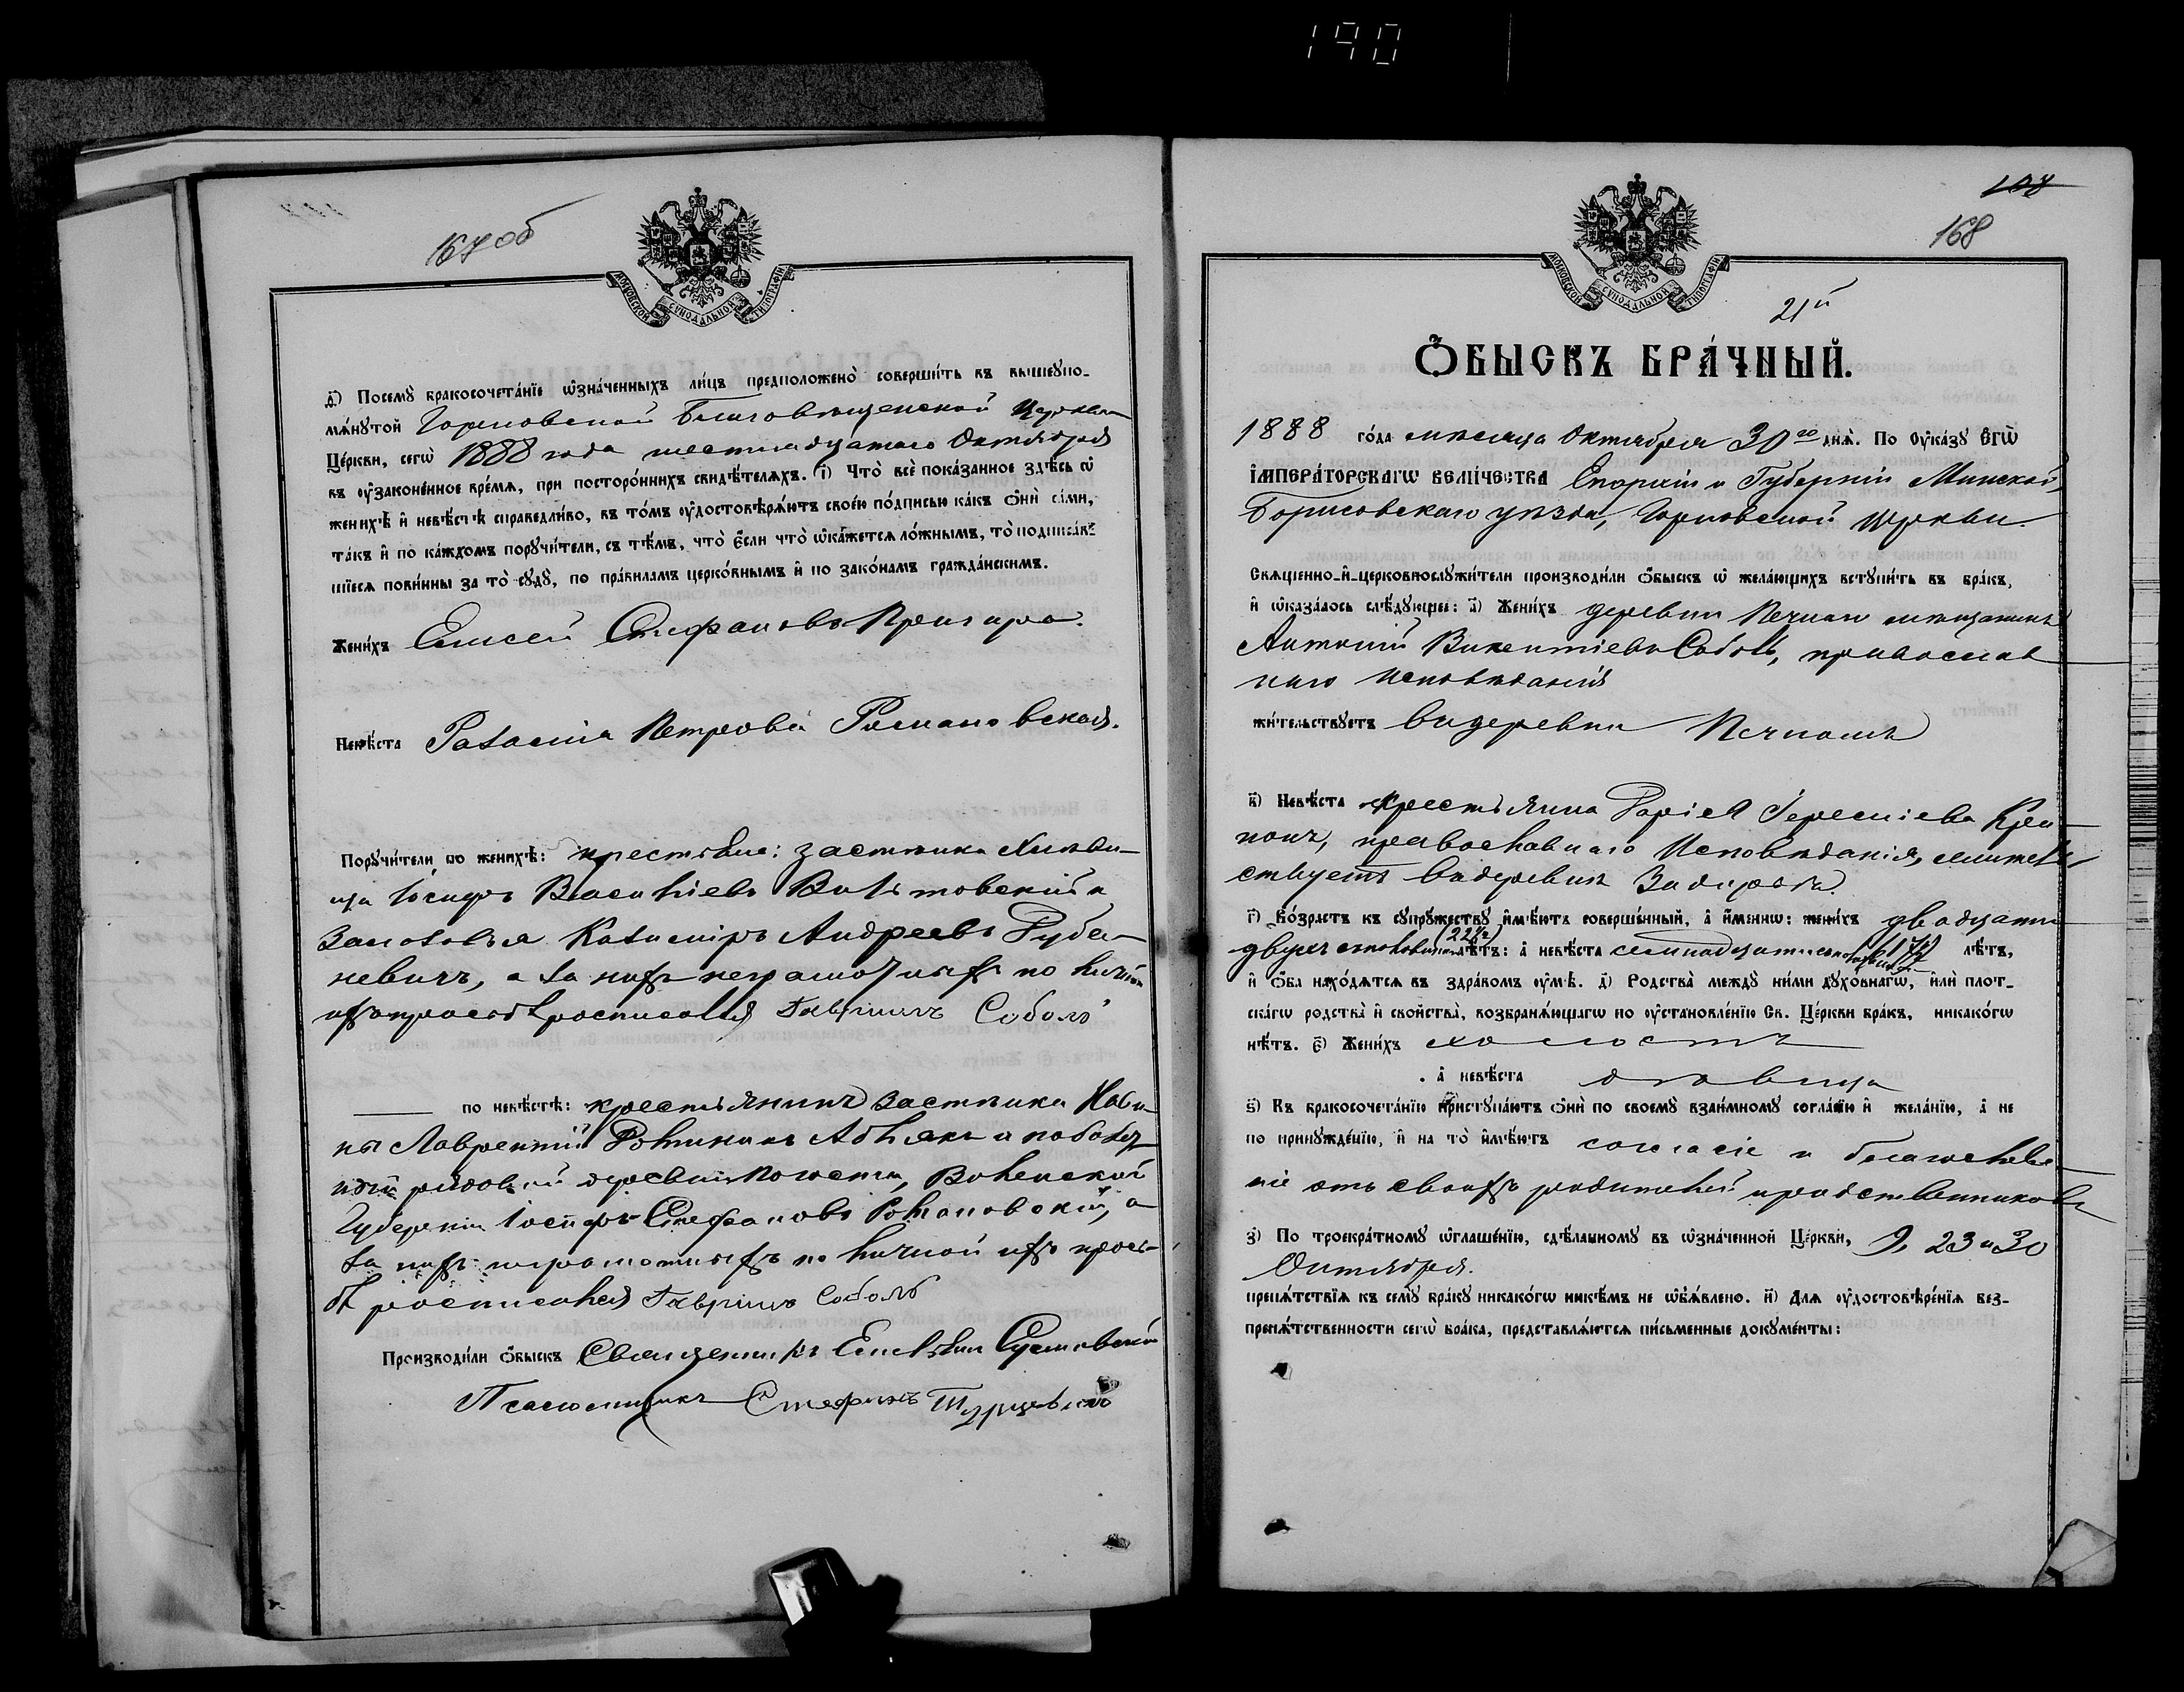 190
167 об
МОСКОВСКОЙ СѴНОДАЛЬНОЙ ТИПОГРАФІИ
д҃) Посемꙋ бракосочета́нїе ѡ҆зна́ченныхъ ли́цъ предположено̀ соверши́ть въ вышеꙋпо-
мѧ́нꙋтой Горновской Благовѣщенской Церкви
Це́ркви, сегѡ̀ 1888 года шестнадцатаго Октября
въ ᲂу҆зако́ненное вре́мѧ, при посторо́ннихъ свидѣ́телѧхъ. і҃) Что̀ всѐ пока́занное здѣ́сь ѡ҆
женихѣ̀ и҆ невѣ́стѣ справедли́во, въ то́мъ ᲂу҆достовѣрѧ́ютъ свое́ю по́дписью ка́къ ѻ҆нѝ са́ми,
та́къ и҆ по ка́ждомъ порꙋчи́тели, съ тѣ́мъ, что̀ є҆́сли что̀ ѡ҆ка́жетсѧ ло́жнымъ, то̀ подписа́в-
шїесѧ пови́нны за то̀ сꙋдꙋ̀, по пра́виламъ церко́внымъ и҆ по зако́намъ гражда́нскимъ.
Жени́хъ Елисей Стефановъ
Невѣ́ста Петрова Романовская.
Порꙋчи́тели по женихѣ̀: крестьяне: застѣнка
Іосифъ Васильевъ и
Казиміръ Андреевъ Рубе-
невичъ, а за нихъ неграмотныхъ по личной
ихъ просьбѣ росписался Гавріилъ Соболь
по невѣ́стѣ: крестьянинъ застѣнка
Лаврентій и
рядовой деревни Погостъ, Виленской
Губерніи Іосифъ Стефановъ Романовскій, а
за нихъ неграмотныхъ по личной ихъ прось-
бѣ росписался Гавріилъ Соболь
Производи́ли ѻ҆́быскъ Священникъ
Псаломщикъ Стефанъ
108
168
МОСКОВСКОЙ СѴНОДАЛЬНОЙ ТИПОГРАФІИ
21й
Ѻ҆БЫСКЪ БРА́ЧНЫЙ.
1888 го́да мѣсяца Октября 30го днѧ̀. По ᲂу҆ка́зꙋ Є҆ГѠ̀
И҆МПЕРА́ТОРСКАГѠ ВЕЛИ́ЧЕСТВА Епархіи и Губерніи Минской,
Борисовскаго уѣзда, Горновской церкви
Свѧще́нно-и҆-церковнослꙋжи́тели производи́ли ѻ҆́быскъ ѡ҆ жела́ющихъ встꙋпи́ть въ бра́къ,
и҆ ѡ҆каза́лось слѣ́дꙋющее: а҃) Жени́хъ деревни мѣщанинъ
Антоній Викентіевъ Соболь, православ
наго исповѣданія
жи́тельствꙋетъ въ деревни
в҃) Невѣ́ста крестьянка Іереміева
православнаго Исповѣданія, житель
ствуетъ въ деревни
г҃) Во́зрастъ къ сꙋпрꙋ́жествꙋ и҆мѣ́ютъ соверше́нный, а҆ и҆́меннѡ: жени́хъ двадцати
двухъ съ половиной (22½) лѣ́тъ: а҆ невѣ́ста семнадцати съ половиной (17½) лѣ́тъ,
и҆ ѻ҆́ба нахо́дѧтсѧ въ здра́вомъ ᲂу҆мѣ̀. д҃) Родства̀ междꙋ̀ ни́ми дꙋхо́внагѡ, и҆лѝ плот-
ска́гѡ родства̀ и҆ сво́йства̀, возбранѧ́ющагѡ по ᲂу҆становле́нїю Св. Це́ркви бра́къ, никако́гѡ
нѣ́тъ. є҃) Жени́хъ холостъ
а҆ невѣ́ста дѣвица
ѕ҃) Къ бракосочета́нїю пристꙋпа́ютъ ѻ҆нѝ по своемꙋ̀ взаи́мномꙋ согла́сїю и҆ жела́нїю, а҆ не
по принꙋжде́нїю, и҆ на то̀ и҆мѣ́ютъ согласіе и благослове-
ніе отъ своихъ родителей и родственниковъ
з҃) По троекра́тномꙋ ѡ҆глаше́нїю, сдѣ́ланномꙋ въ ѡ҆зна́ченной Це́ркви, 9, 23 и 30
Октября.
препѧ́тствїѧ къ семꙋ̀ бра́кꙋ никако́гѡ никѣ́мъ не ѡ҆б̾ѧ́влено. и҃) Длѧ ᲂу҆достовѣре́нїѧ без-
препѧ́тственности сегѡ̀ бра́ка, представлѧ́ютсѧ пи́сьменные докꙋме́нты: